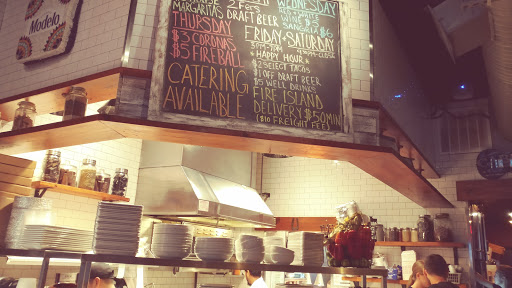 Modelo
MARGARITAS
2 Fers
DRAFT BEER
THURSDAY
$3 CORONAS
$5 FIREBALL
CATERING
AVAILABLE
WEDNESDAY
SANGRIA $6
FRIDAY-SATURDAY
HAPPY HOUR
$2 SELECT TACOS
$1 OFF DRAFT BEER
$5 WELL DRINKS
FIRE ISLAND
DELIVERY $50 MIN
($10 FREIGHT FEE)